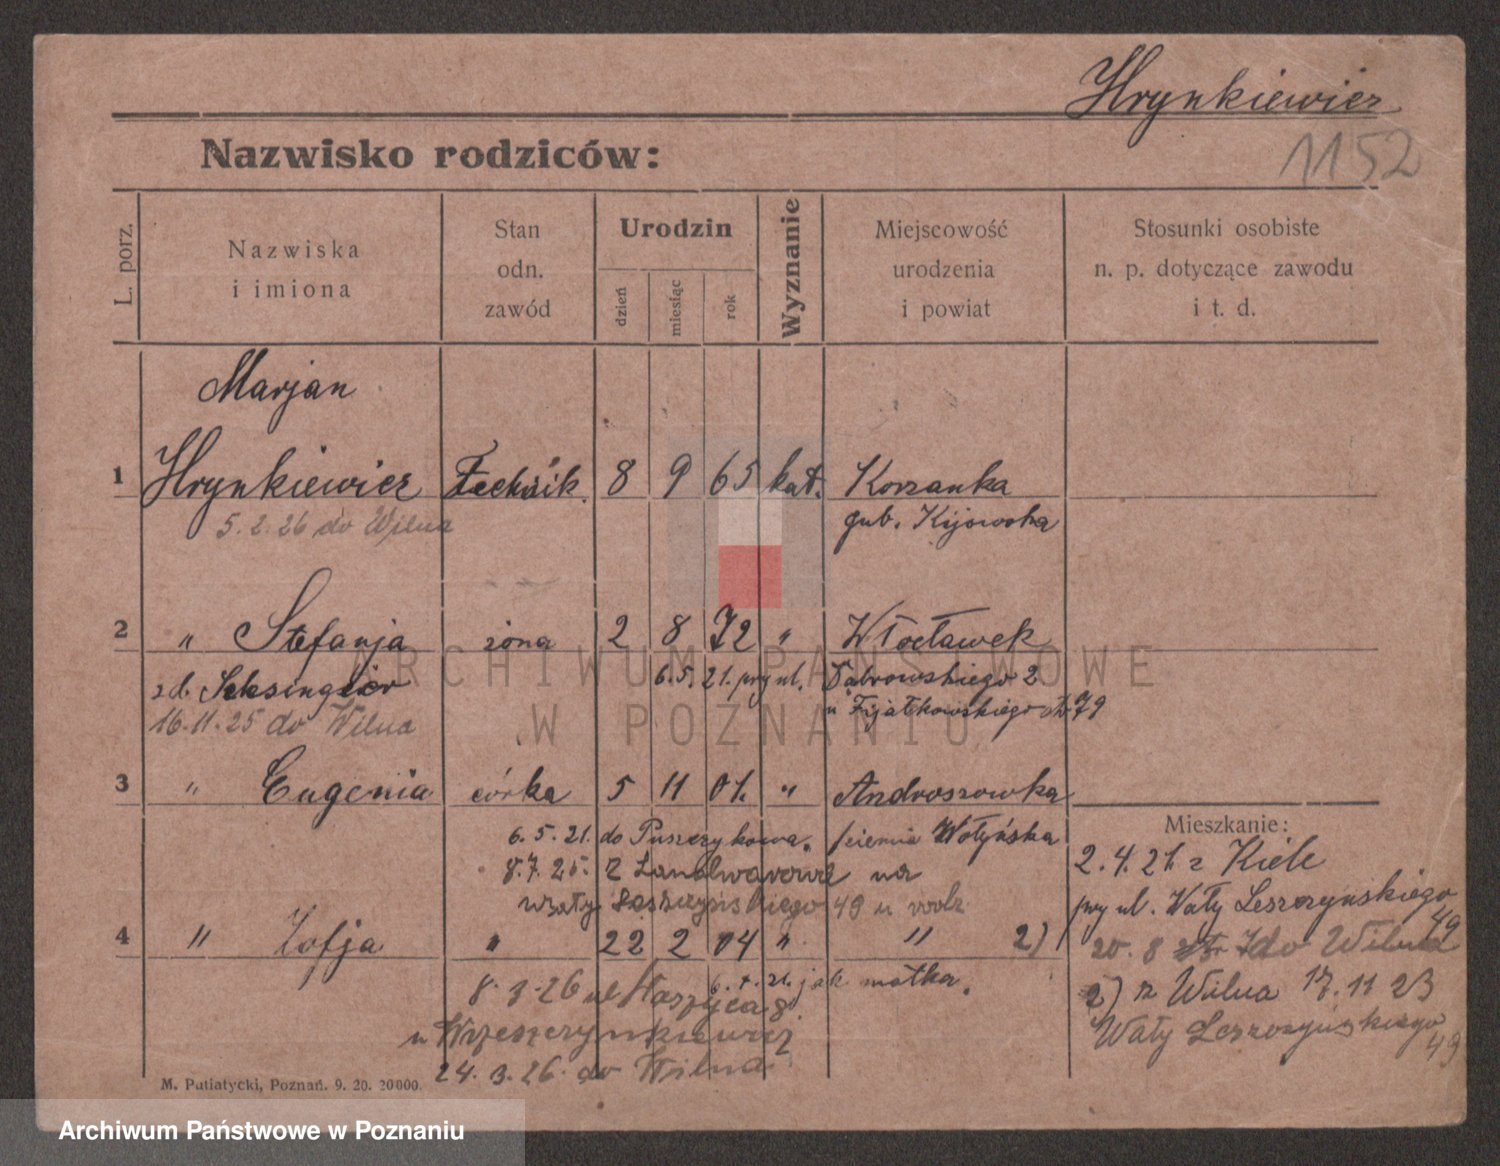 Hrynkiewicz
1152
Nazwisko rodziców:
L. porz.
Nazwiska
i imiona
Stan
odn.
zawód
Urodzin
dzień
miesiąc
rok
Wyznanie
Miejscowość
urodzenia
i powiat
Stosunki osobiste
n. p. dotyczące zawodu
i t. d.
Marjan
1 Hrynkiewicz Technik. 8 9 65 kat. Korzanka
5. 2. 26 do Wilna
gub. Kijowska
2 " Stefanja żona 2 8 72 " Włocławek
zd.
6. 5. 21. przy ul. Dąbrowskiego 2
16.11.25 do Wilna
u Fijałkowskiego 79
3 " Eugenia córka 5 11 01. " Androszowka
6. 5. 21. do Puszczykowa.
ziemia Wołyńska
8. 7. 25. z Landwarowa na
Wały Leszczyńskiego 49 u rodz
4 " Zofja " 22 2 04 " "
jak matka.
8. 3. 26 ul
u
24. 3. 26. do Wilna
Mieszkanie:
2. 4. 21. z Kiele
przy ul. Wały Leszczyńskiego
49
20. 8 do Wilna
2) z Wilna 17. 11 23
Wały Leszczyńskiego
49
2)
M. Putiatycki, Poznań. 9. 20. 20000.
ARCHIWUM PAŃSTWOWE
W POZNANIU
Archiwum Państwowe w Poznaniu